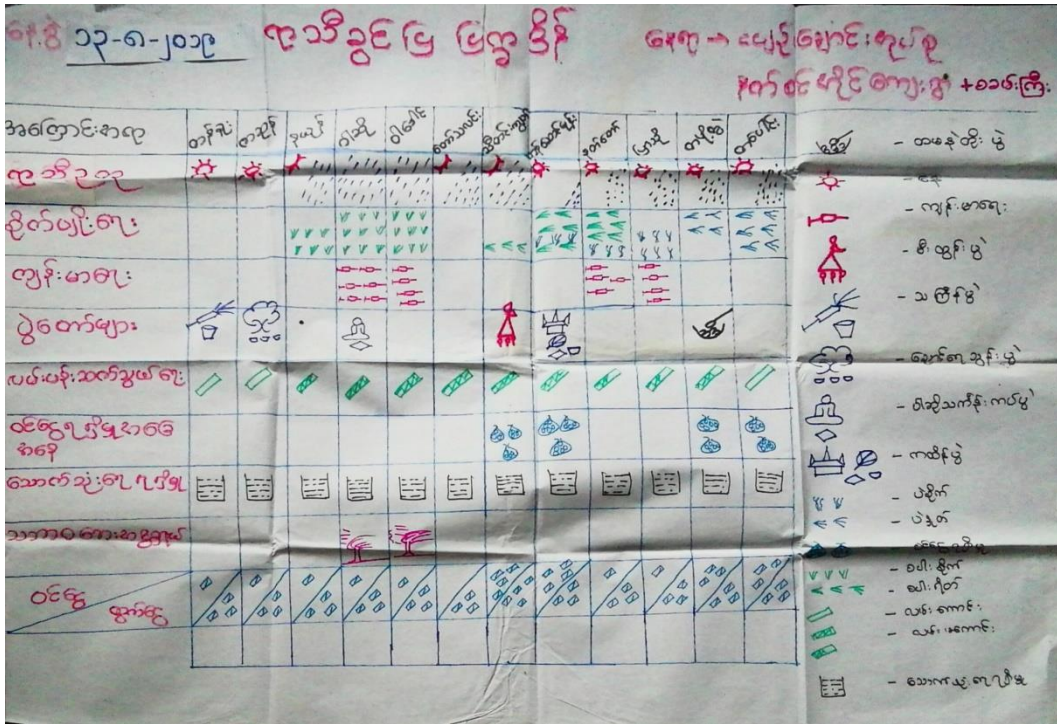 နေ့စွဲ ၁၃-၆-၂၀၁၉ ရာသီခွင်ပြ ပြက္ခဒိန်
နေရာ →
+ စခမ်းကြီး
အကြောင်းအရာ တန်ခူး ကဆုန် နယုန် ဝါဆို ဝါခေါင် တော်သလင်း သီတင်းကျွတ် တန်ဆောင်မုန်း နတ်တော် ပြာသို တပို့တွဲ တပေါင်း
ရာသီဥတု
စိုက်ပျိုးရေး
ကျန်းမာရေး
ပွဲတော်များ
လမ်းပန်းဆက်သွယ်ရေး
ဝင်ငွေရရှိမှုအခြေ
အနေ
သောက်သုံးရေရရှိမှု
သဘာဝဘေးအန္တရာယ်
ဝင်ငွေ
ထွက်ငွေ
- ထမနဲထိုးပွဲ
- နေ
- ကျန်းမာရေး
- မီးထွန်းပွဲ
- သင်္ကြန်ပွဲ
- ညောင်ရေသွန်းပွဲ
- ဝါဆိုသင်္ကန်းကပ်ပွဲ
- ကထိန်ပွဲ
- ပဲစိုက်
- ပဲနုတ်
- စပါးစိုက်
- စပါးရိတ်
- လမ်းကောင်း
- လမ်းမကောင်း
- သောက်သုံးရေရရှိမှု